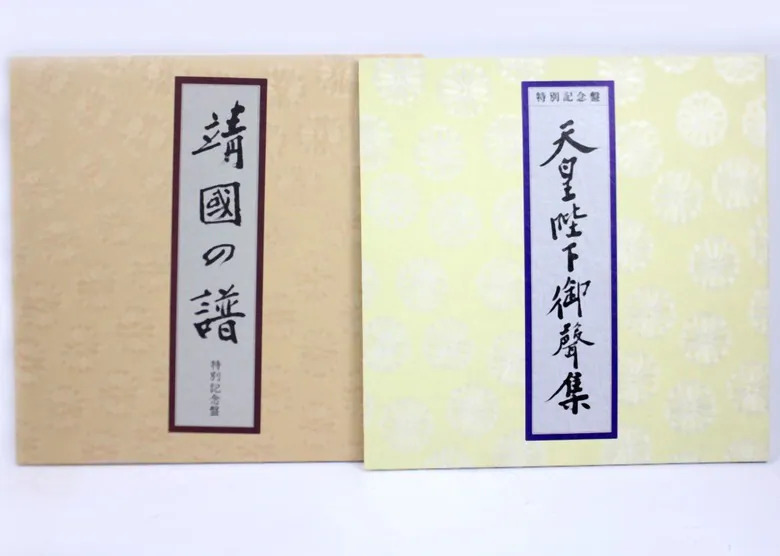 靖國の譜
特別記念盤
特別記念盤
天皇陛下御聲集